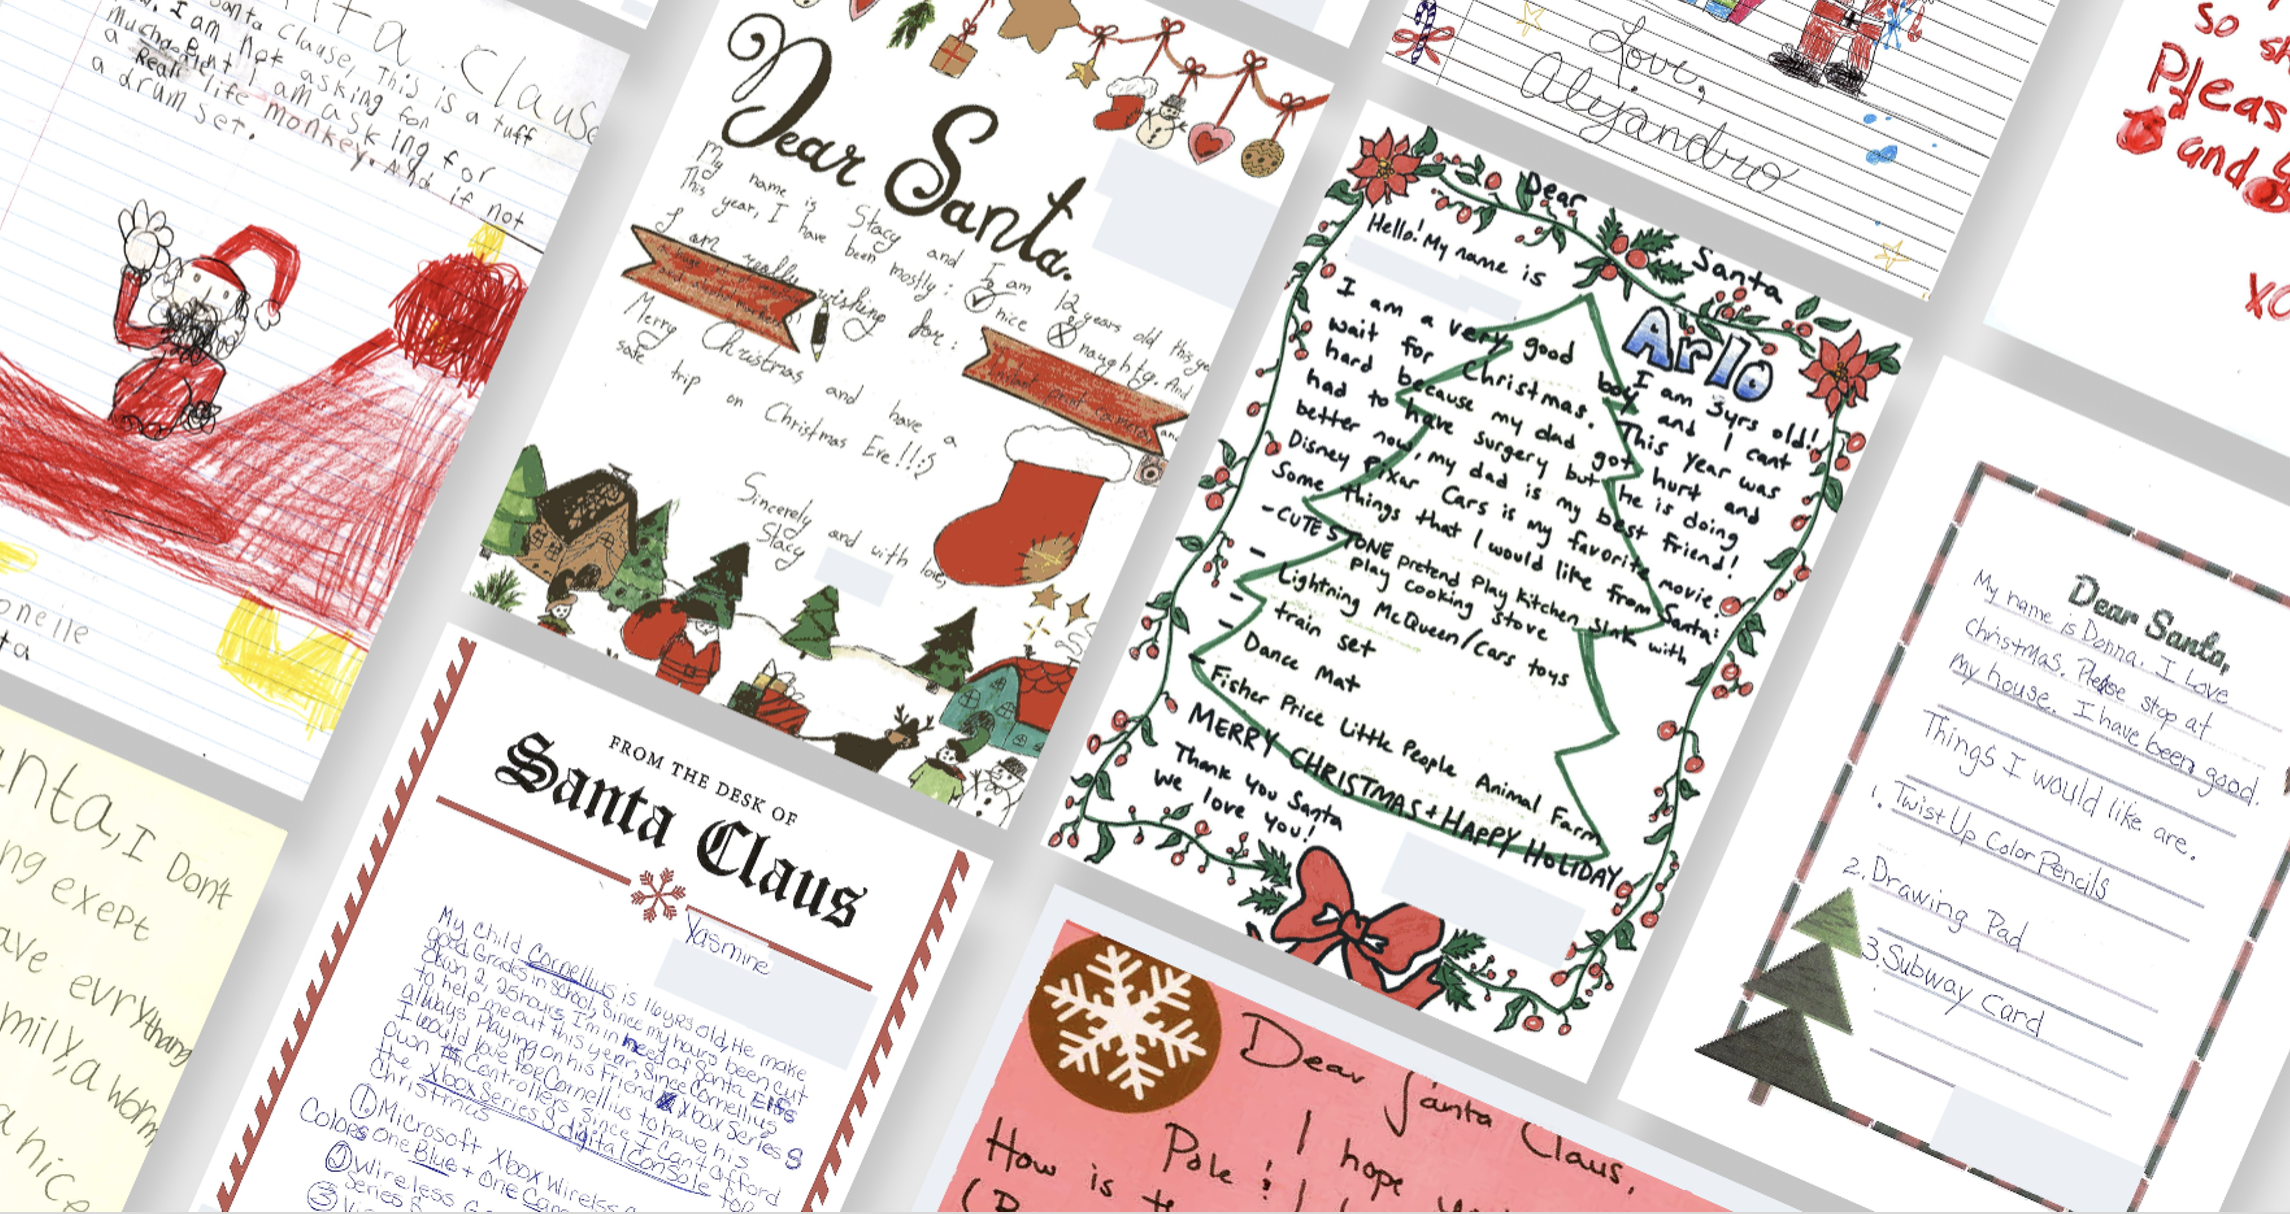 Santa Clause
Santa Clause, This is a tuff
I am Not asking for
Much I am asking for
a Reali life monkey. And if not
a drum set.
Dear Santa.
My name is Stacy and I am 12 years old this
This year, I have been mostly: nice naughty. And
I am really wishing for:
instant print camera
and
Merry Christmas and have a
safe trip on Christmas Eve!!:)
Sincerely and with love,
Stacy
Love,
Alejandro
so
Pleas
and
XO
Dear Santa
Hello! My name is Arlo
I am 3yrs old!
I am a very good boy and I cant
wait for Christmas. This year was
hard because my dad got hurt and
had to have surgery but he is doing
better now, my dad is my best friend!
Disney Pixar Cars is my favorite movie.
Some things that I would like from Santa:
-CUTE STONE pretend Play Kitchen sink with
play cooking stove
- Lightning McQueen/Cars toys
- train set
- Dance Mat
- Fisher Price Little People Animal Farm
MERRY CHRISTMAS + HAPPY HOLIDAY
Thank you Santa
We love you!
Dear Santa,
My name is Donna. I Love
christmas. Please stop at
my house. I have been good.
Things I would like are.
1. Twist Up Color Pencils
2. Drawing Pad
3. Subway Card
anta, I Don't
ng exept
ave evrything
mily, a
a nice
FROM THE DESK OF
Santa Claus
Yasmine
My Child Cornellius is 16yrs old, He make
good Grades in school, Since my hours been cut
down 2, 25hours, I'm in need of Santa Elfs
to help me out this year, Since Cornellius
always Playing on his friend Xbox Series S
I would love for Cornellius to have his
own Controllers Since I Can't afford
the Xbox Series S digital Console for
Christmas
① Microsoft Xbox Wireless
Colors one Blue + one
② Wireless
Series S
③
Dear Santa Claus,
I hope
How is the Pole!